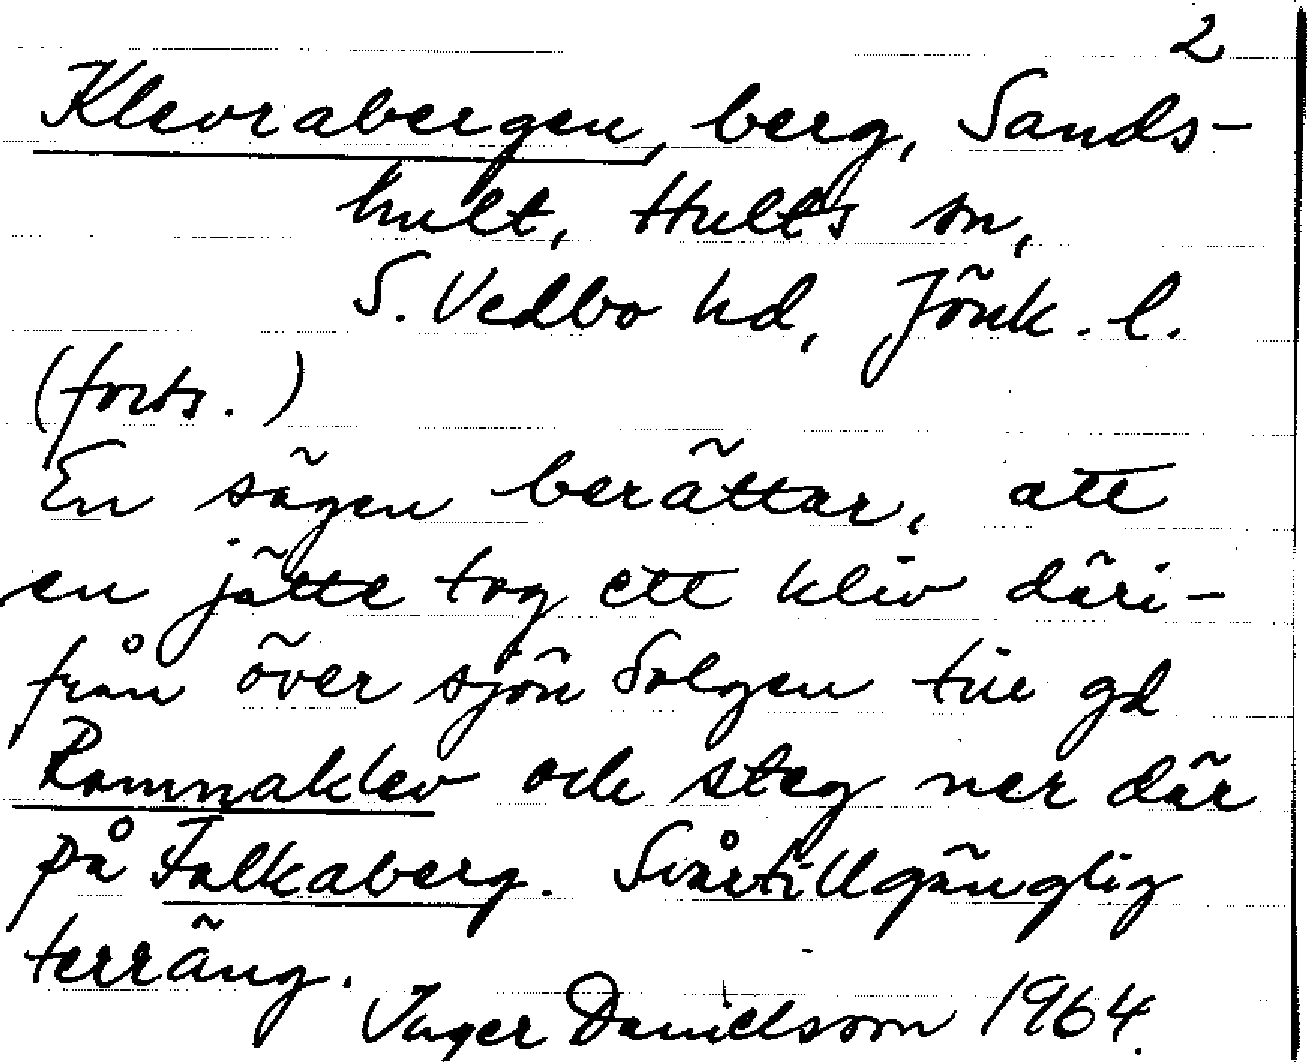 2
Klevrabergen, berg, Sands-
hult, Hults sn,
S. Vedbo hd, Jönk. l.
(forts.)
En sägen berättar, att
en jätte tog ett kliv däri-
från över sjön Solgen till gd
Romnaklev och steg ner där
på Falkaberg. Svårtillgänglig
terräng.
Inger Danielsson 1964.